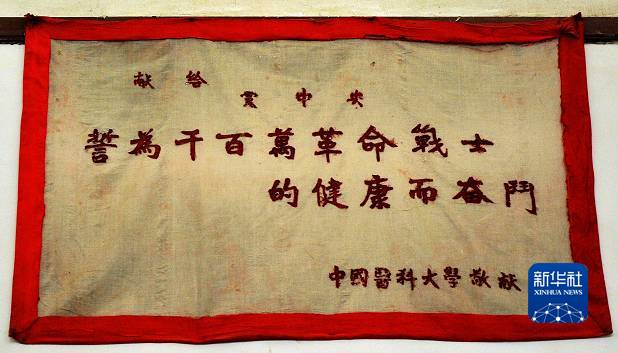 献給
黨中央
誓為千百萬革命戰士
的健康而奋鬥
中國醫科大學敬献
新华社
XINHUA NEWS